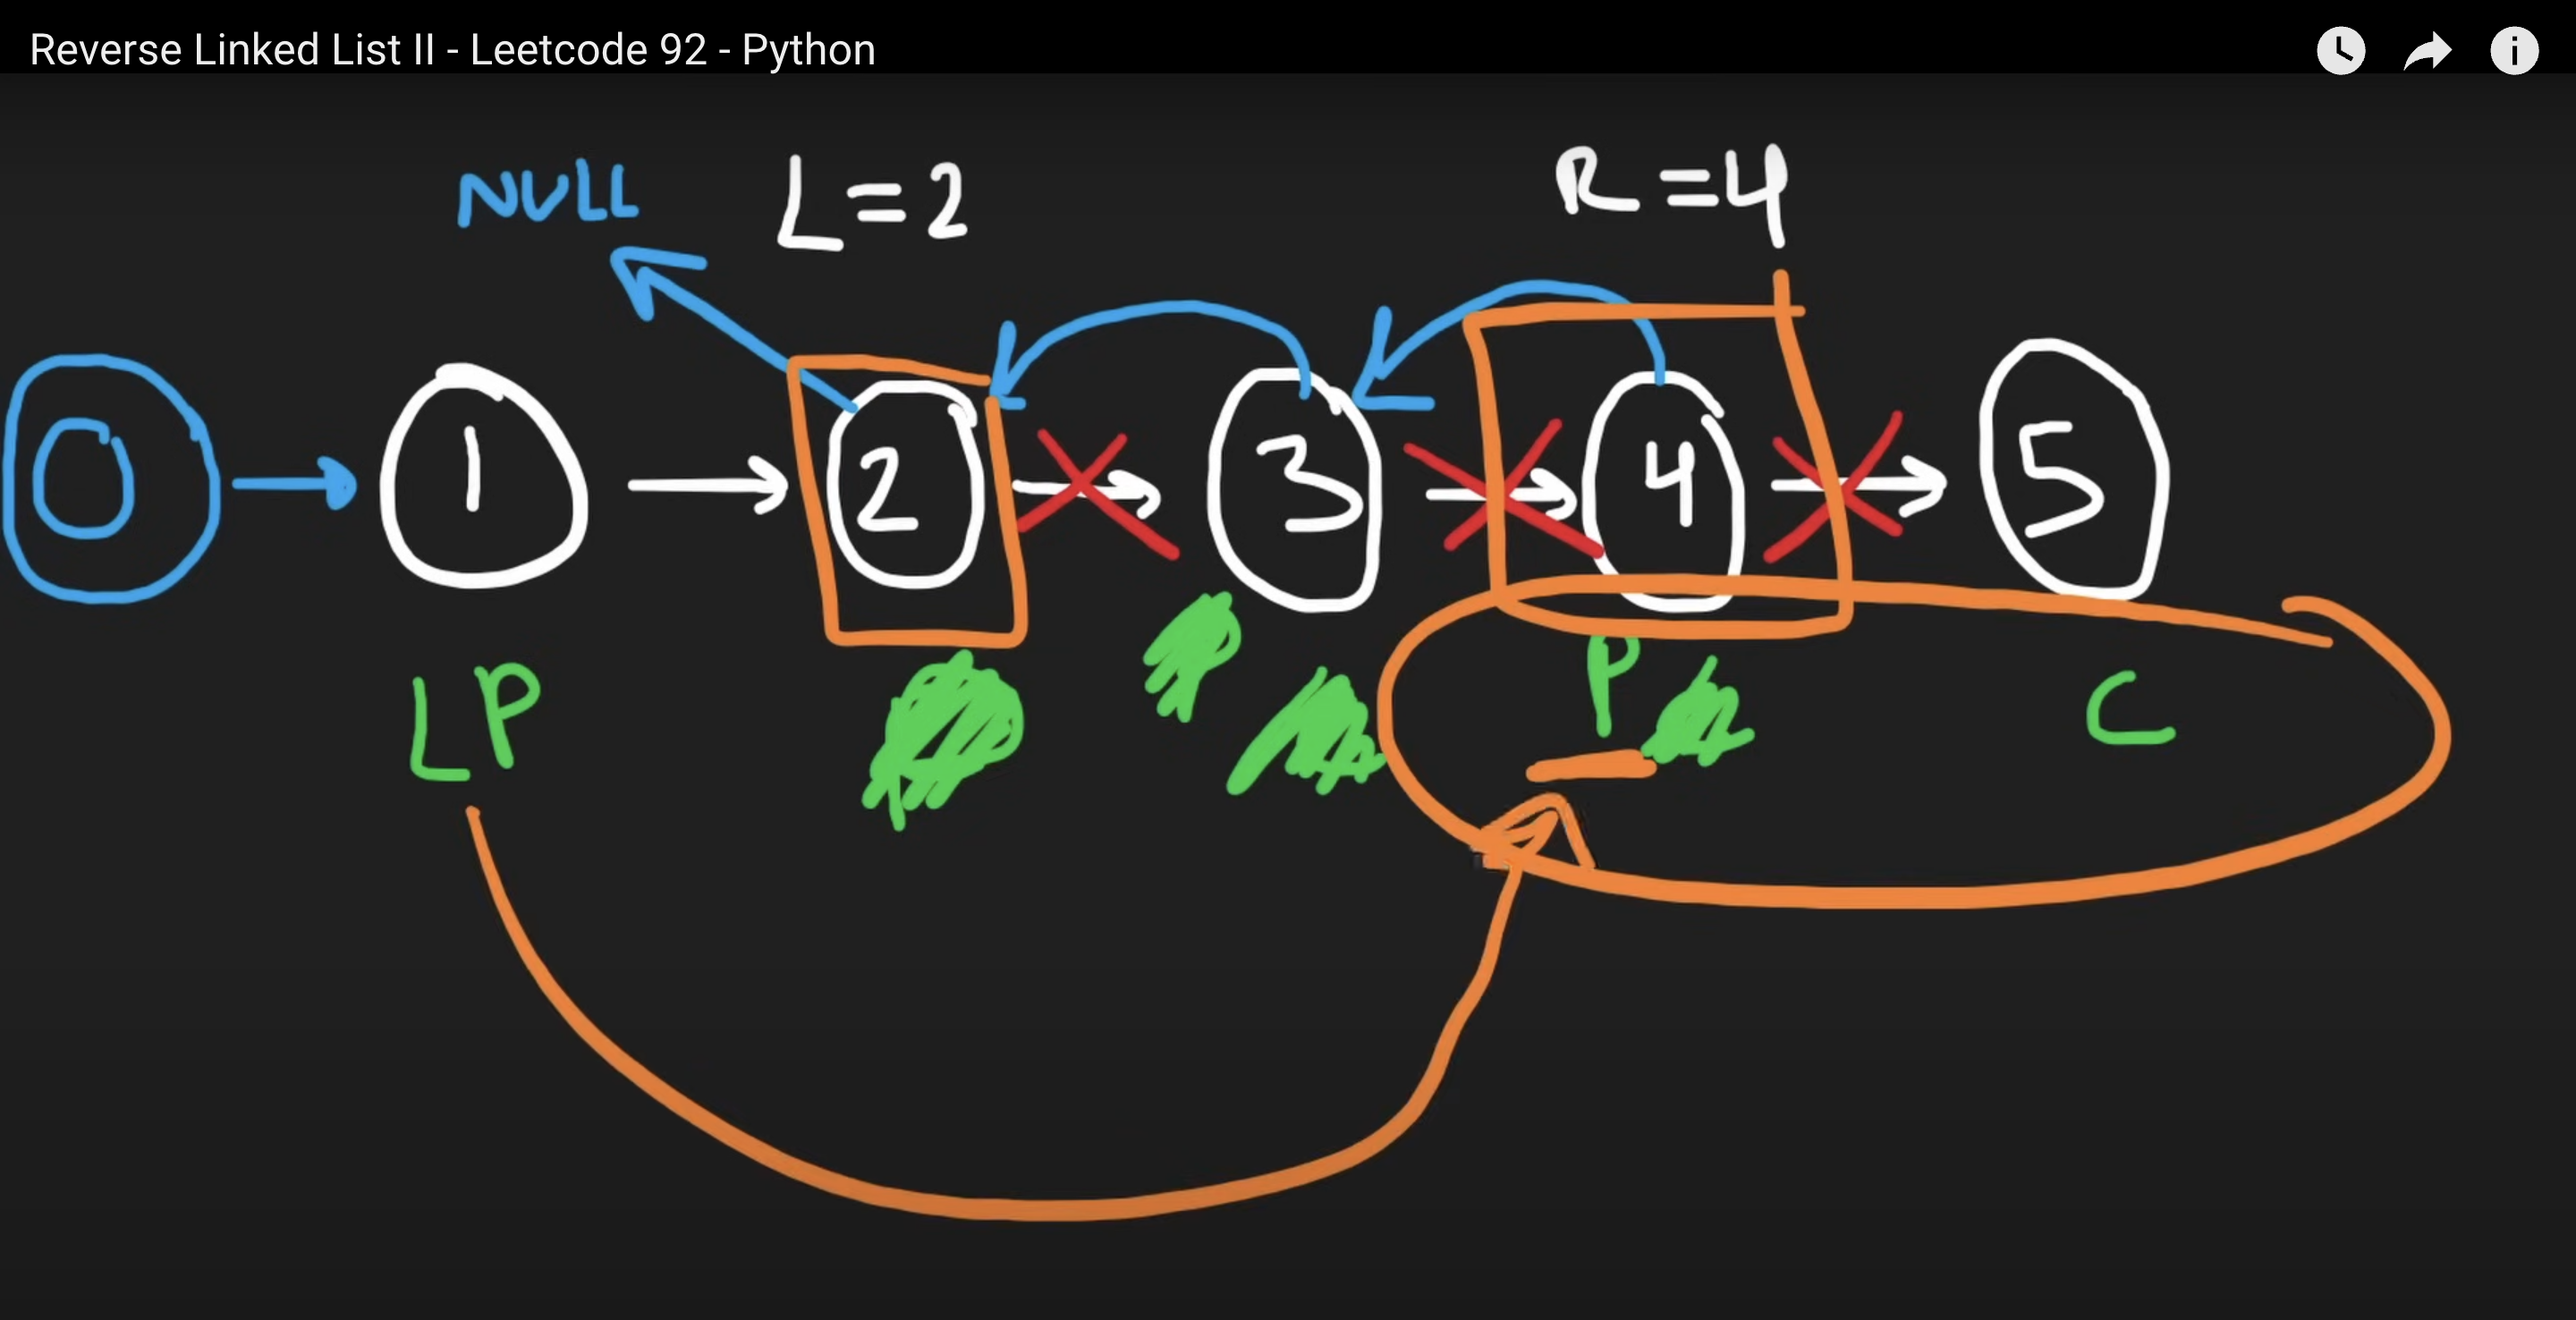 Reverse Linked List II - Leetcode 92 - Python
NULL L=2 R=4
0 1 2 3 4 5
LP P C